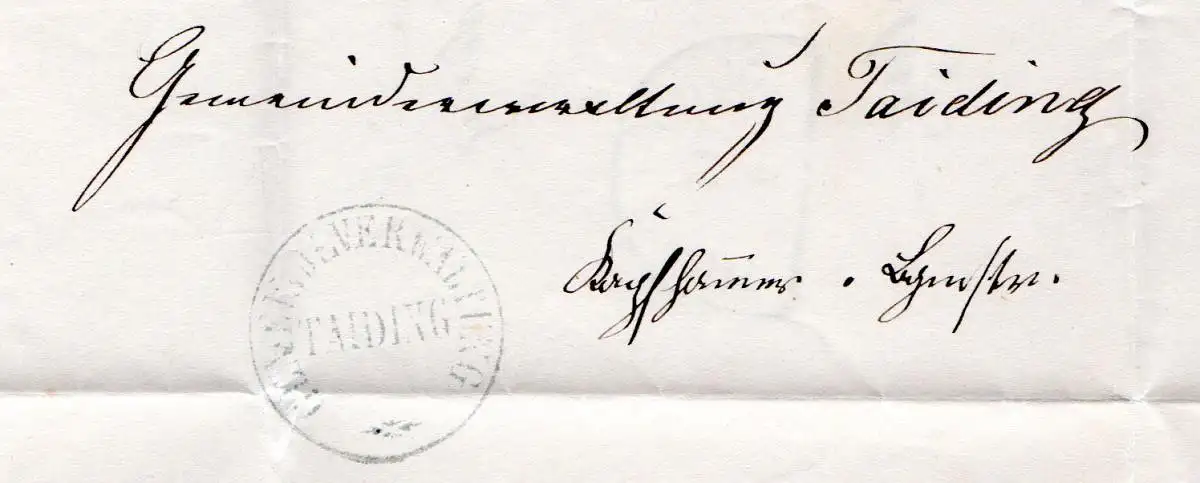 Gemeindeverwaltung Taiding
Kapfhammer . Bgmstr.
GEMEINDEVERWALTUNG
TAIDING